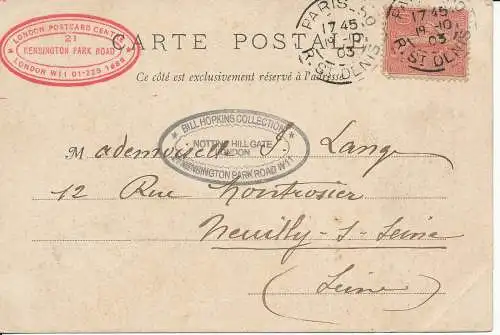 LONDON POSTCARD CENTRE
21
KENSINGTON PARK ROAD
LONDON W11 01-229 1888
CARTE POSTALE
Ce côté est exclusivement réservé à l'adresse
PARIS_50
17 45
19_10
03
R. ST DENIS
17 45
19_10
03
R. ST DENIS
BILL HOPKINS COLLECTION
NOTTING HILL GATE
LONDON
KENSINGTON PARK ROAD W11
Mademoiselle S. Lange
12 Rue Montrosier
Neuilly-S-Seine
(Seine)